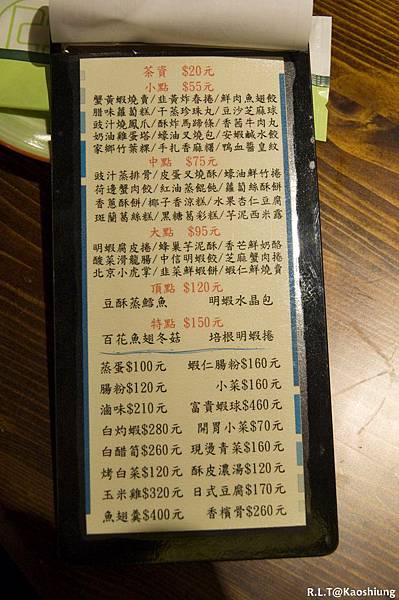 茶資 $20元
小點 $55元
蟹黃蝦燒賣/韭黃炸春捲/鮮肉魚翅餃
腊味蘿蔔糕/干蒸珍珠丸/豆沙芝麻球
豉汁燒鳳爪/酥炸馬蹄條/香茜牛肉丸
奶油雞蛋塔/蠔油叉燒包/安蝦鹹水餃
家鄉竹葉粿/手扎香麻糬/鴨血醬皇紋
中點 $75元
豉汁蒸排骨/皮蛋叉燒酥/蠔油鮮竹捲
荷邊蟹肉餃/紅油蒸餛飩/蘿蔔絲酥餅
香蔥酥餅/椰子香涼糕/水果杏仁豆腐
斑蘭葛絲糕/黑糖葛彩糕/芋泥西米露
大點 $95元
明蝦腐皮捲/蜂巢芋泥酥/香芒鮮奶酪
酸菜滑龍腸/中信明蝦餃/芝麻蟹肉捲
北京小虎掌/韭菜鮮蝦餅/蝦仁鮮燒賣
頂點 $120元
豆酥蒸鱈魚 明蝦水晶包
特點 $150元
百花魚翅冬菇 培根明蝦捲
蒸蛋$100元 蝦仁腸粉$160元
腸粉$120元 小菜$160元
滷味$210元 富貴蝦球$460元
白灼蝦$280元 開胃小菜$70元
白醋筍$260元 現燙青菜$160元
烤白菜$120元 酥皮濃湯$120元
玉米雞$320元 日式豆腐$170元
魚翅羹$400元 香檳骨$260元
R.L.T@Kaoshiung